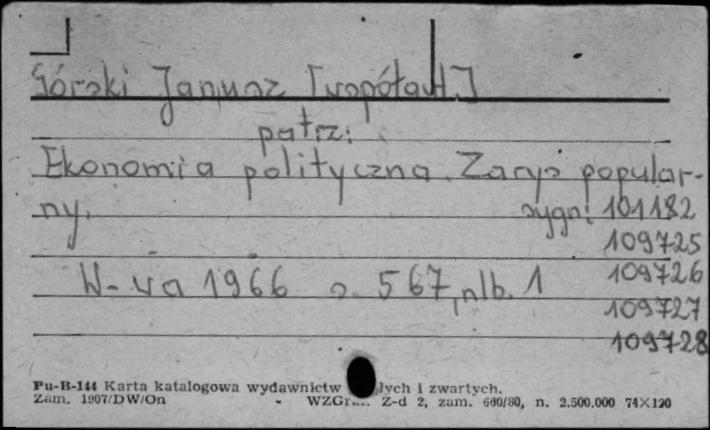 Górski Janusz [współaut.]
patrz:
Ekonomia polityczna. Zarys popular-
ny. sygn: 101182
109725
W-wa 1966 s. 567, nlb. 1 109726
109727
109728
Pu-B-144 Karta katalogowa wydawnictw i zwartych.
Zam. 1907/DW/On - WZGraf. Z-d 2, zam. 660/80, n. 2.500.000 74×120